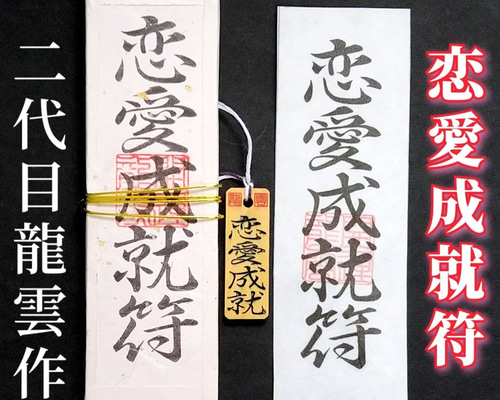 恋愛成就符
恋愛成就符
恋愛成就
恋愛成就符
二代目龍雲作